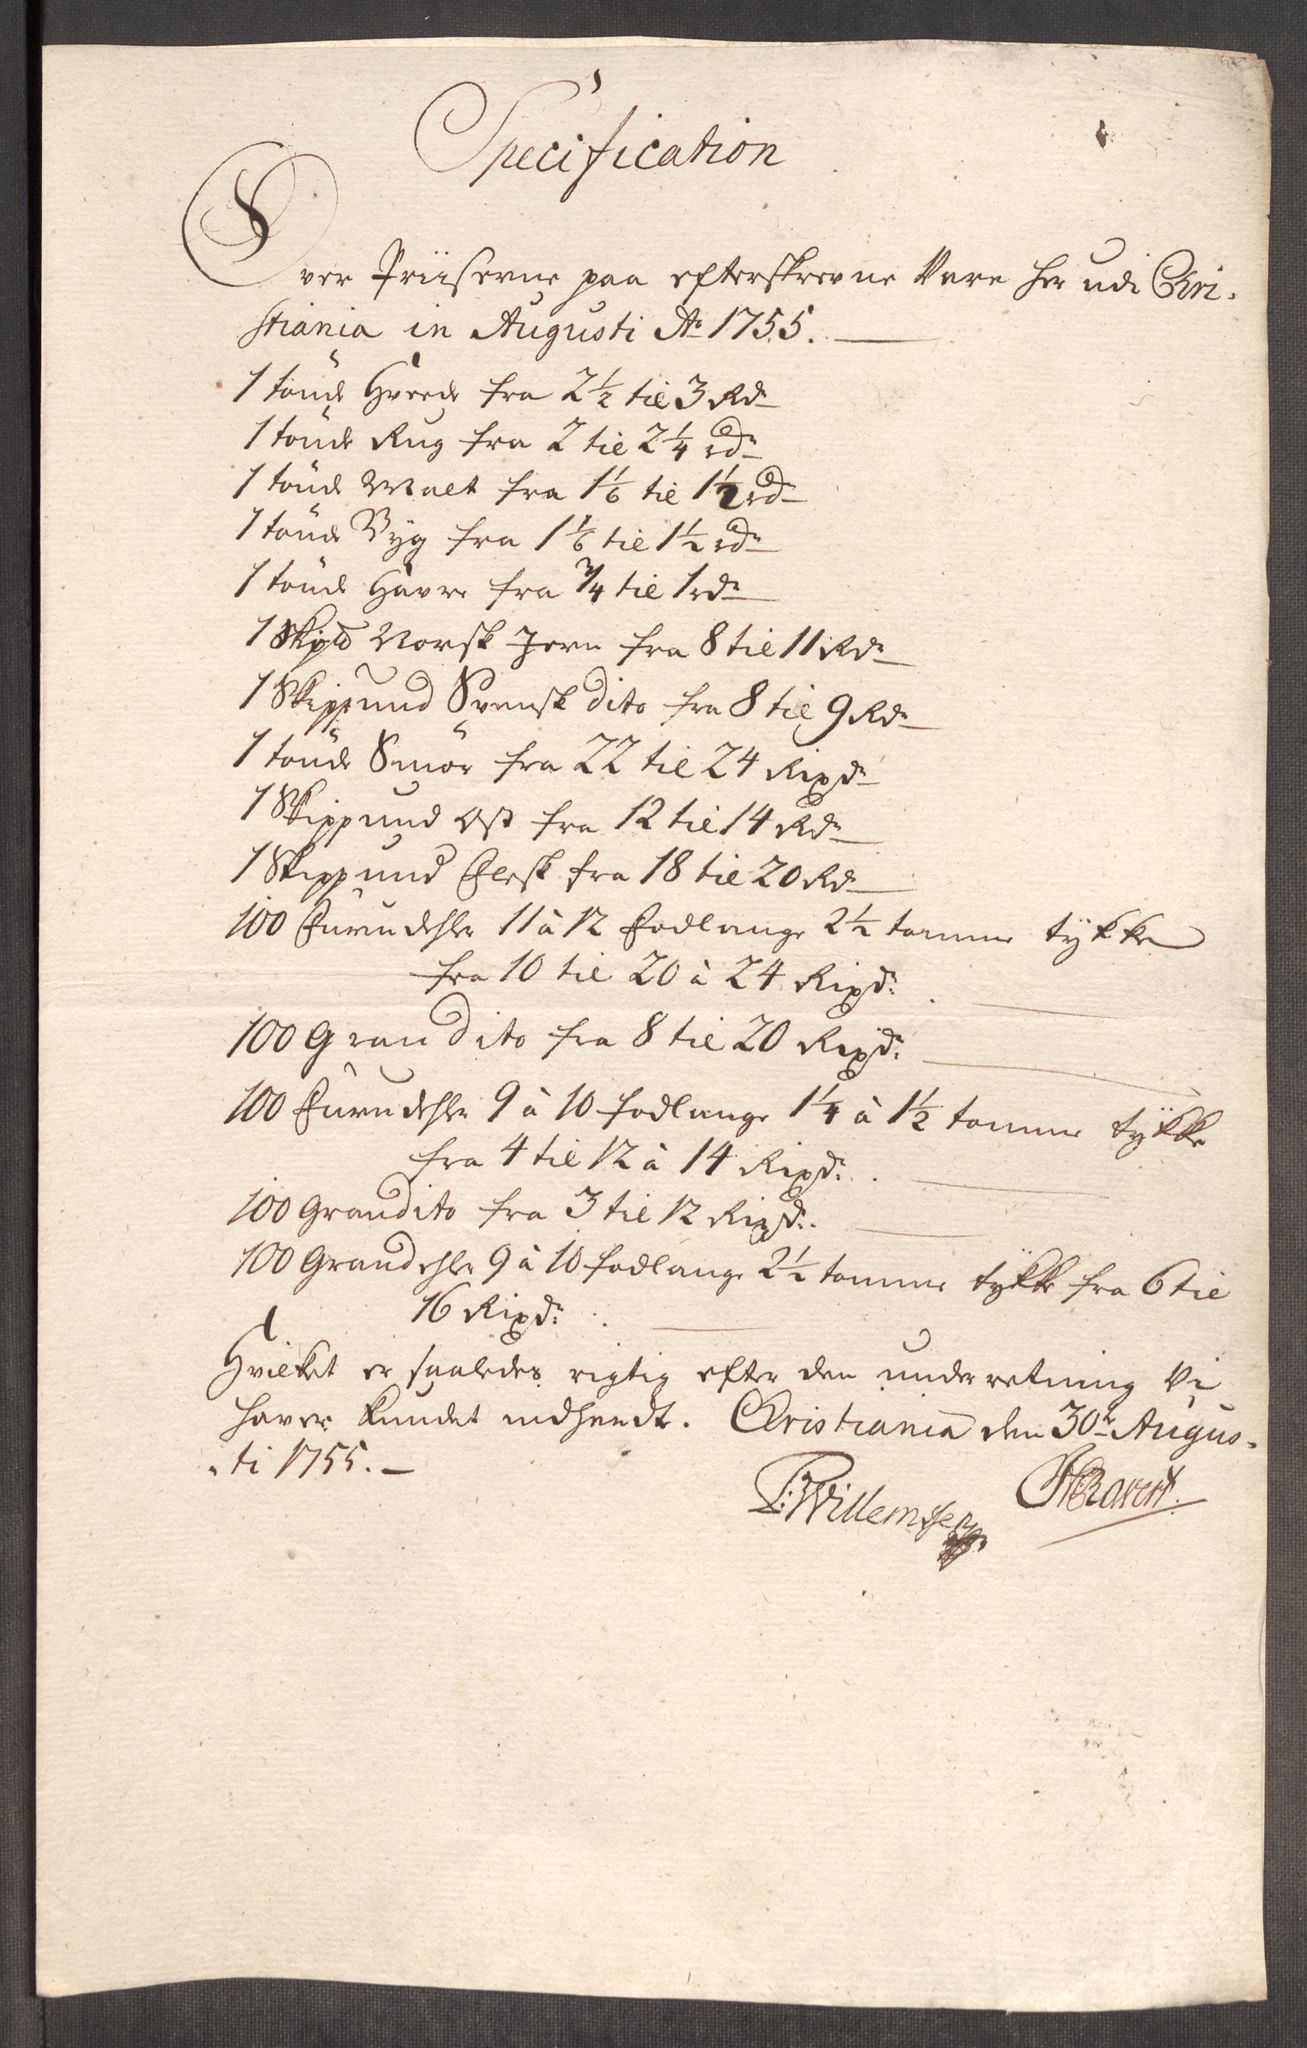 Specification
Over Priiserne paa efterskrevne Vare her udi Chri-
stiania in Augusti Ao 1755.
1 tönde Hvede fra 2 1/2 til 3 Rdr
1 tönde Rug fra 2 til 2 1/4 rdr
1 tönde Malt fra 1 1/6 til 1 1/2 rdr
1 tönde Byg fra 1 1/6 til 1 1/2 rdr
1 tönde Havre fra 3/4 til 1 rdr
1 Skpd Norsk Jern fra 8 til 11 Rdr
1 Skippund Svensk dito fra 8 til 9 Rdr
1 tönde Smör fra 22 til 24 Rixdr
1 Skippund Ost fra 12 til 14 Rdr
1 Skippund Flesk fra 18 til 20 Rdr
100 Furudehler 11 à 12 Fodlange 2 1/2 tomme tykke
fra 10 til 20 à 24 Rixdr.
100 Gran dito fra 8 til 20 Rixdr.
100 Furudehler 9 à 10 fodlange 1 1/4 à 1 1/2 tomme tykke
fra 4 til 12 à 14 Rixdr.
100 Gran dito fra 3 til 12 Rixdr.
100 Grandehler 9 à 10 fodlange 2 1/2 tomme tykke fra 6 til
16 Rixdr.
Hvilket er saaledes rigtig efter den underretning Vi
haver kundet indhendt. Christiania den 30te Augus-
ti 1755.
Willemsen